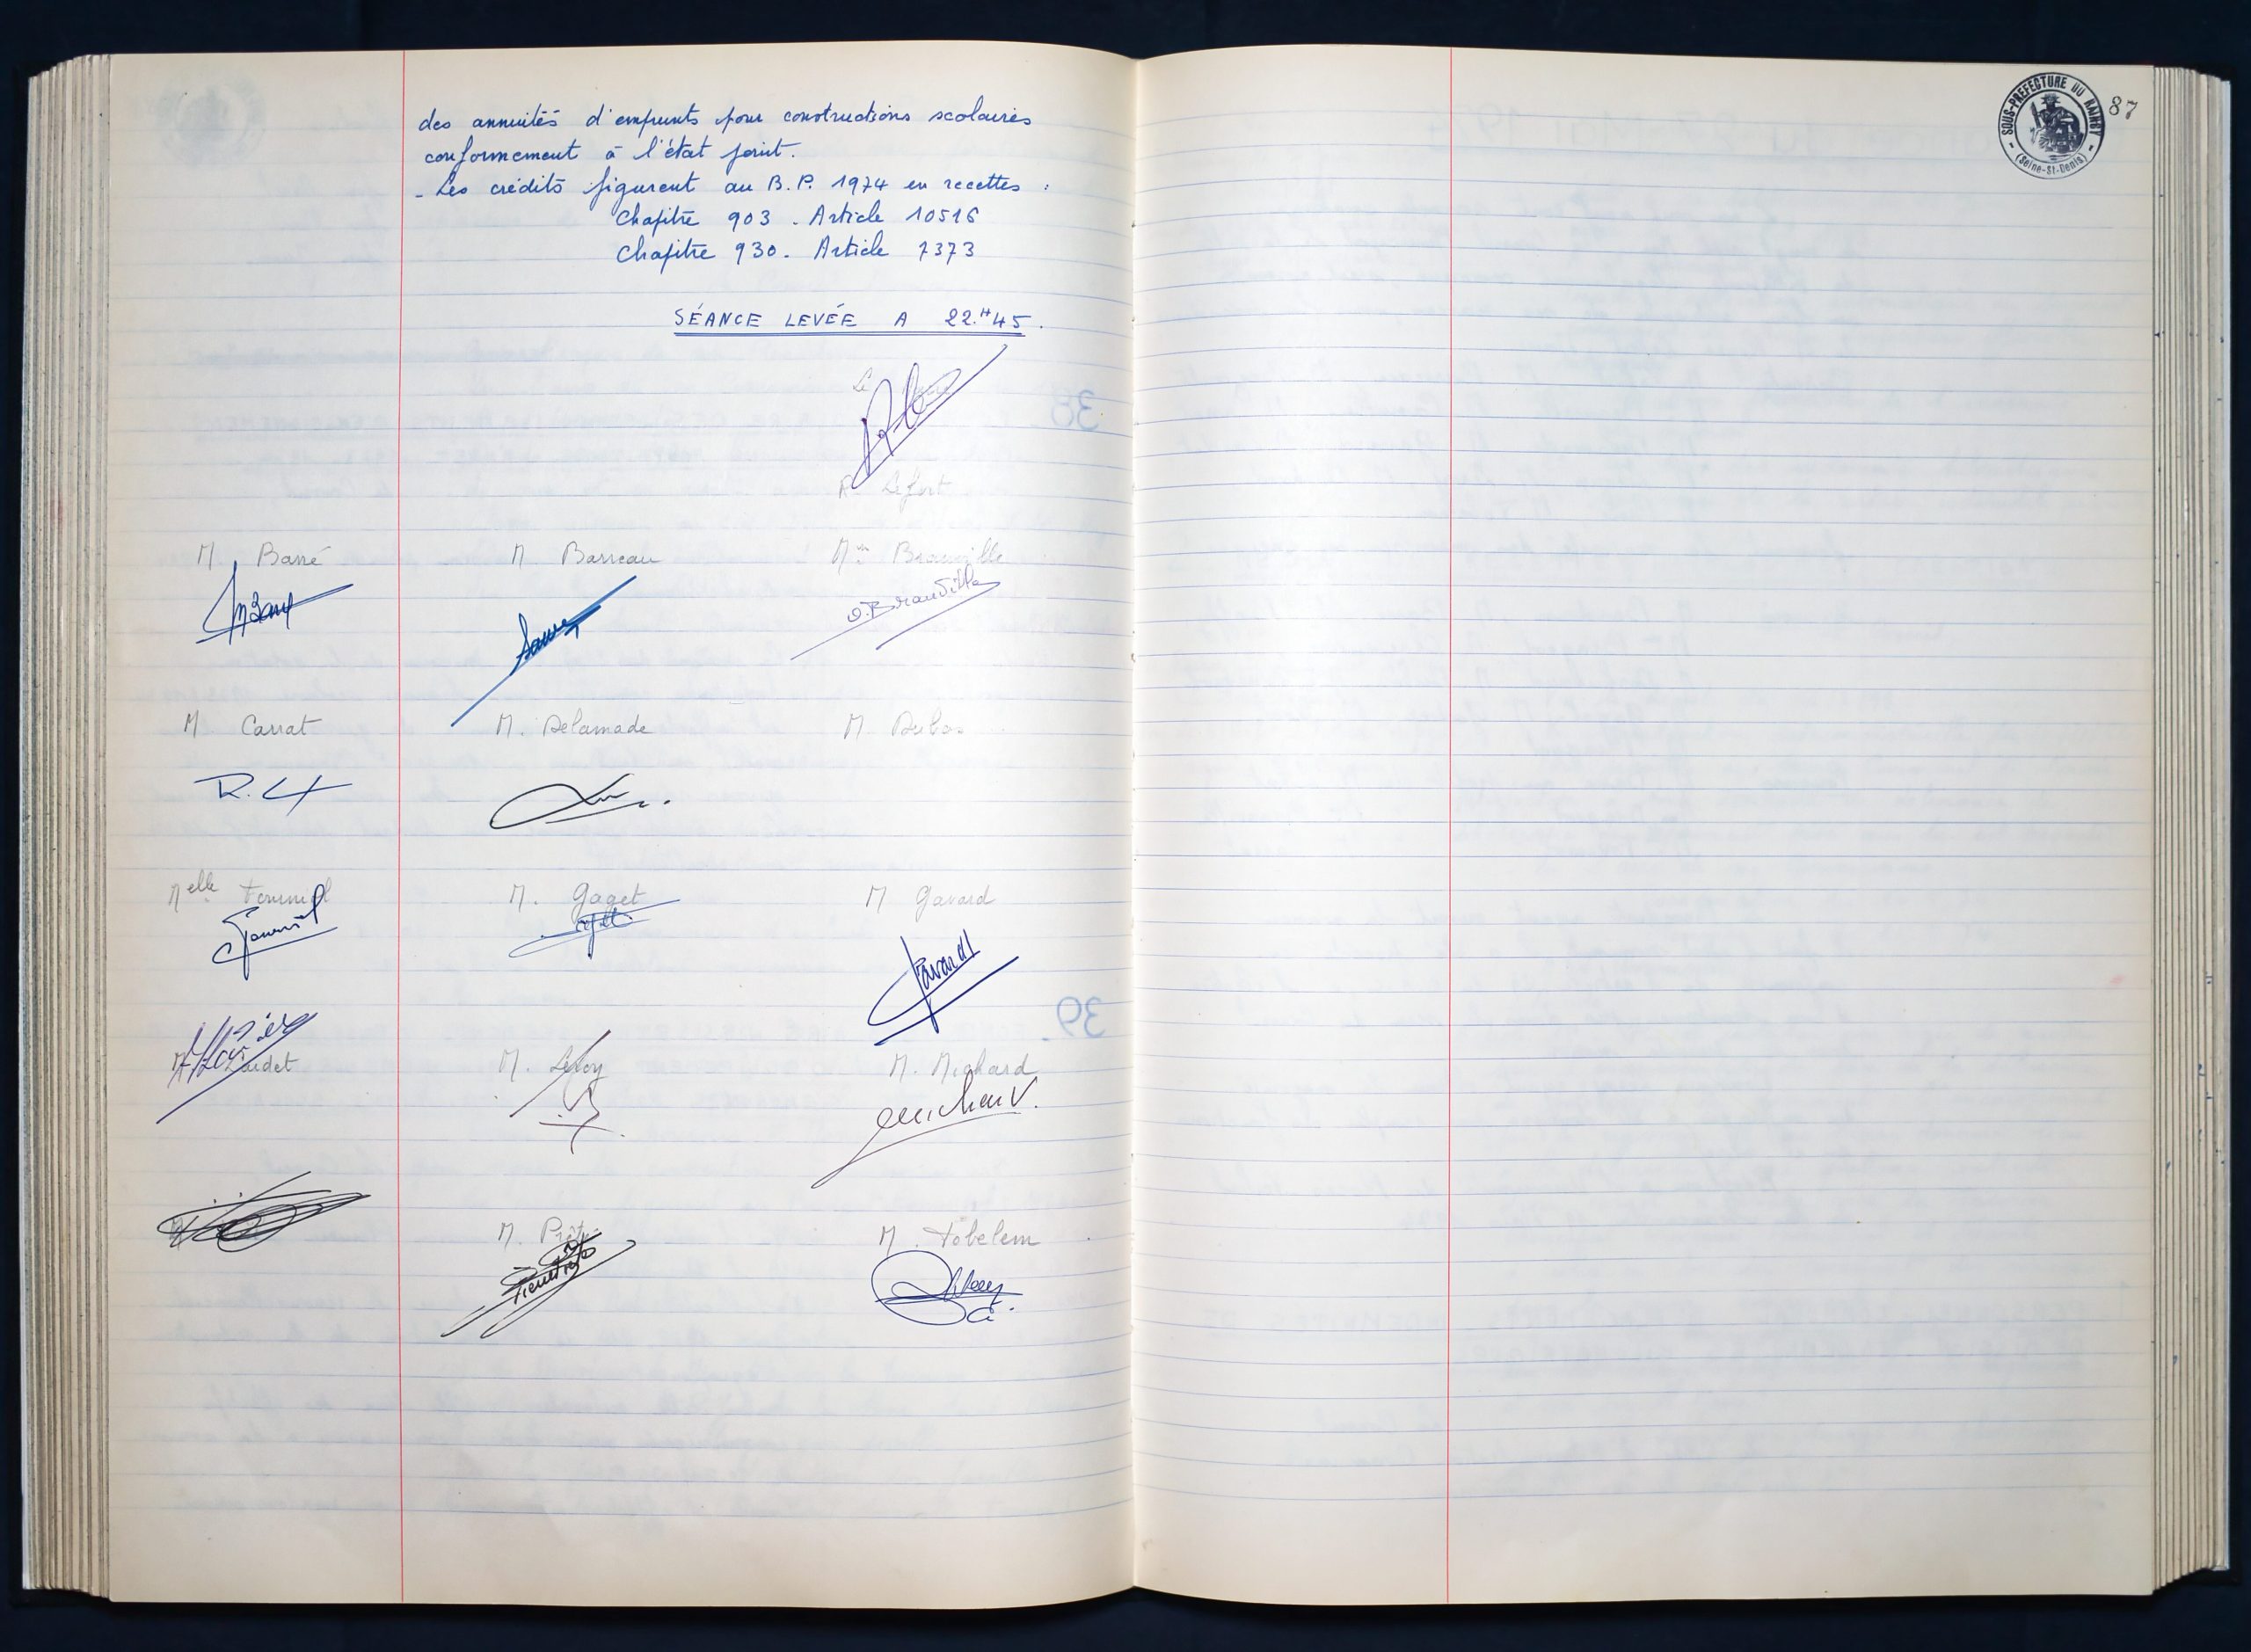 des annuités d'emprunts pour constructions scolaires
conformement à l'état joint.
- Les crédits figurent au B.P. 1974 en recettes :
Chapitre 903 - Article 10516
Chapitre 930 - Article 7373
SÉANCE LEVÉE A 22.H45.
Le
R. Lefort
M. Barré M. Barreau Mme Brauville
O. Brauville
M. Carrat M. Delamade M. Dubos
R.
Melle Fourniol M. Gaget M. Gavard
Gavard
M. Laidet M. Leroy M. Michard
M. M. Tobelem
SOUS-PREFECTURE DU RAINCY
(Seine-St-Denis)
87